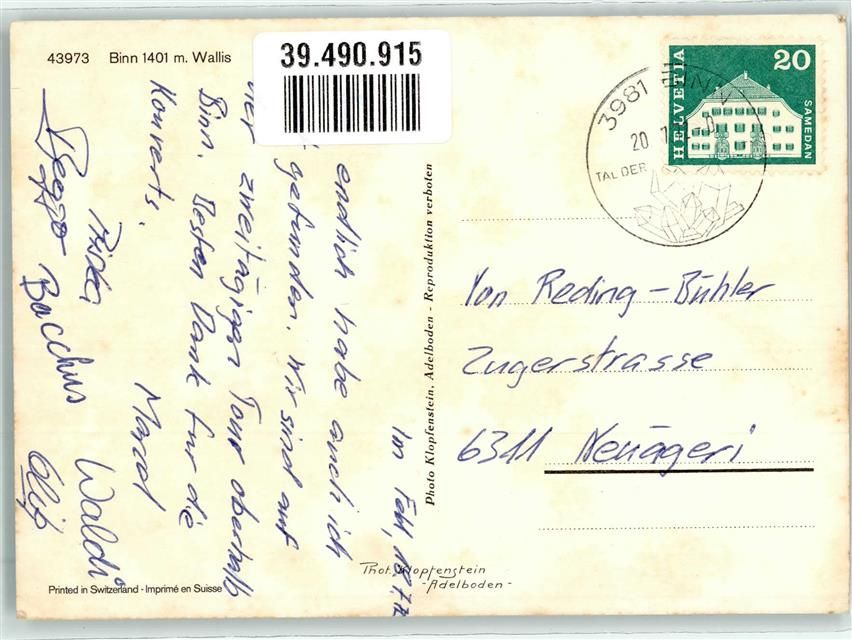 43973 Binn 1401 m. Wallis
39.490.915
HELVETIA
20
SAMEDAN
3981 BINN
20
TAL DER
Im Feld, 18.7.72
endlich habe auch ich
gefunden. Wir sind auf
zweitägigen Tour oberhalb
Binn. Besten Dank für die
Kouverts.
Marcel
Waldi
Bacchus
Photo Klopfenstein, Adelboden - Reproduktion verboten
Von Reding-Bühler
Zugerstrasse
6311 Neuägeri
Phot. Klopfenstein
-Adelboden-
Printed in Switzerland - Imprimé en Suisse